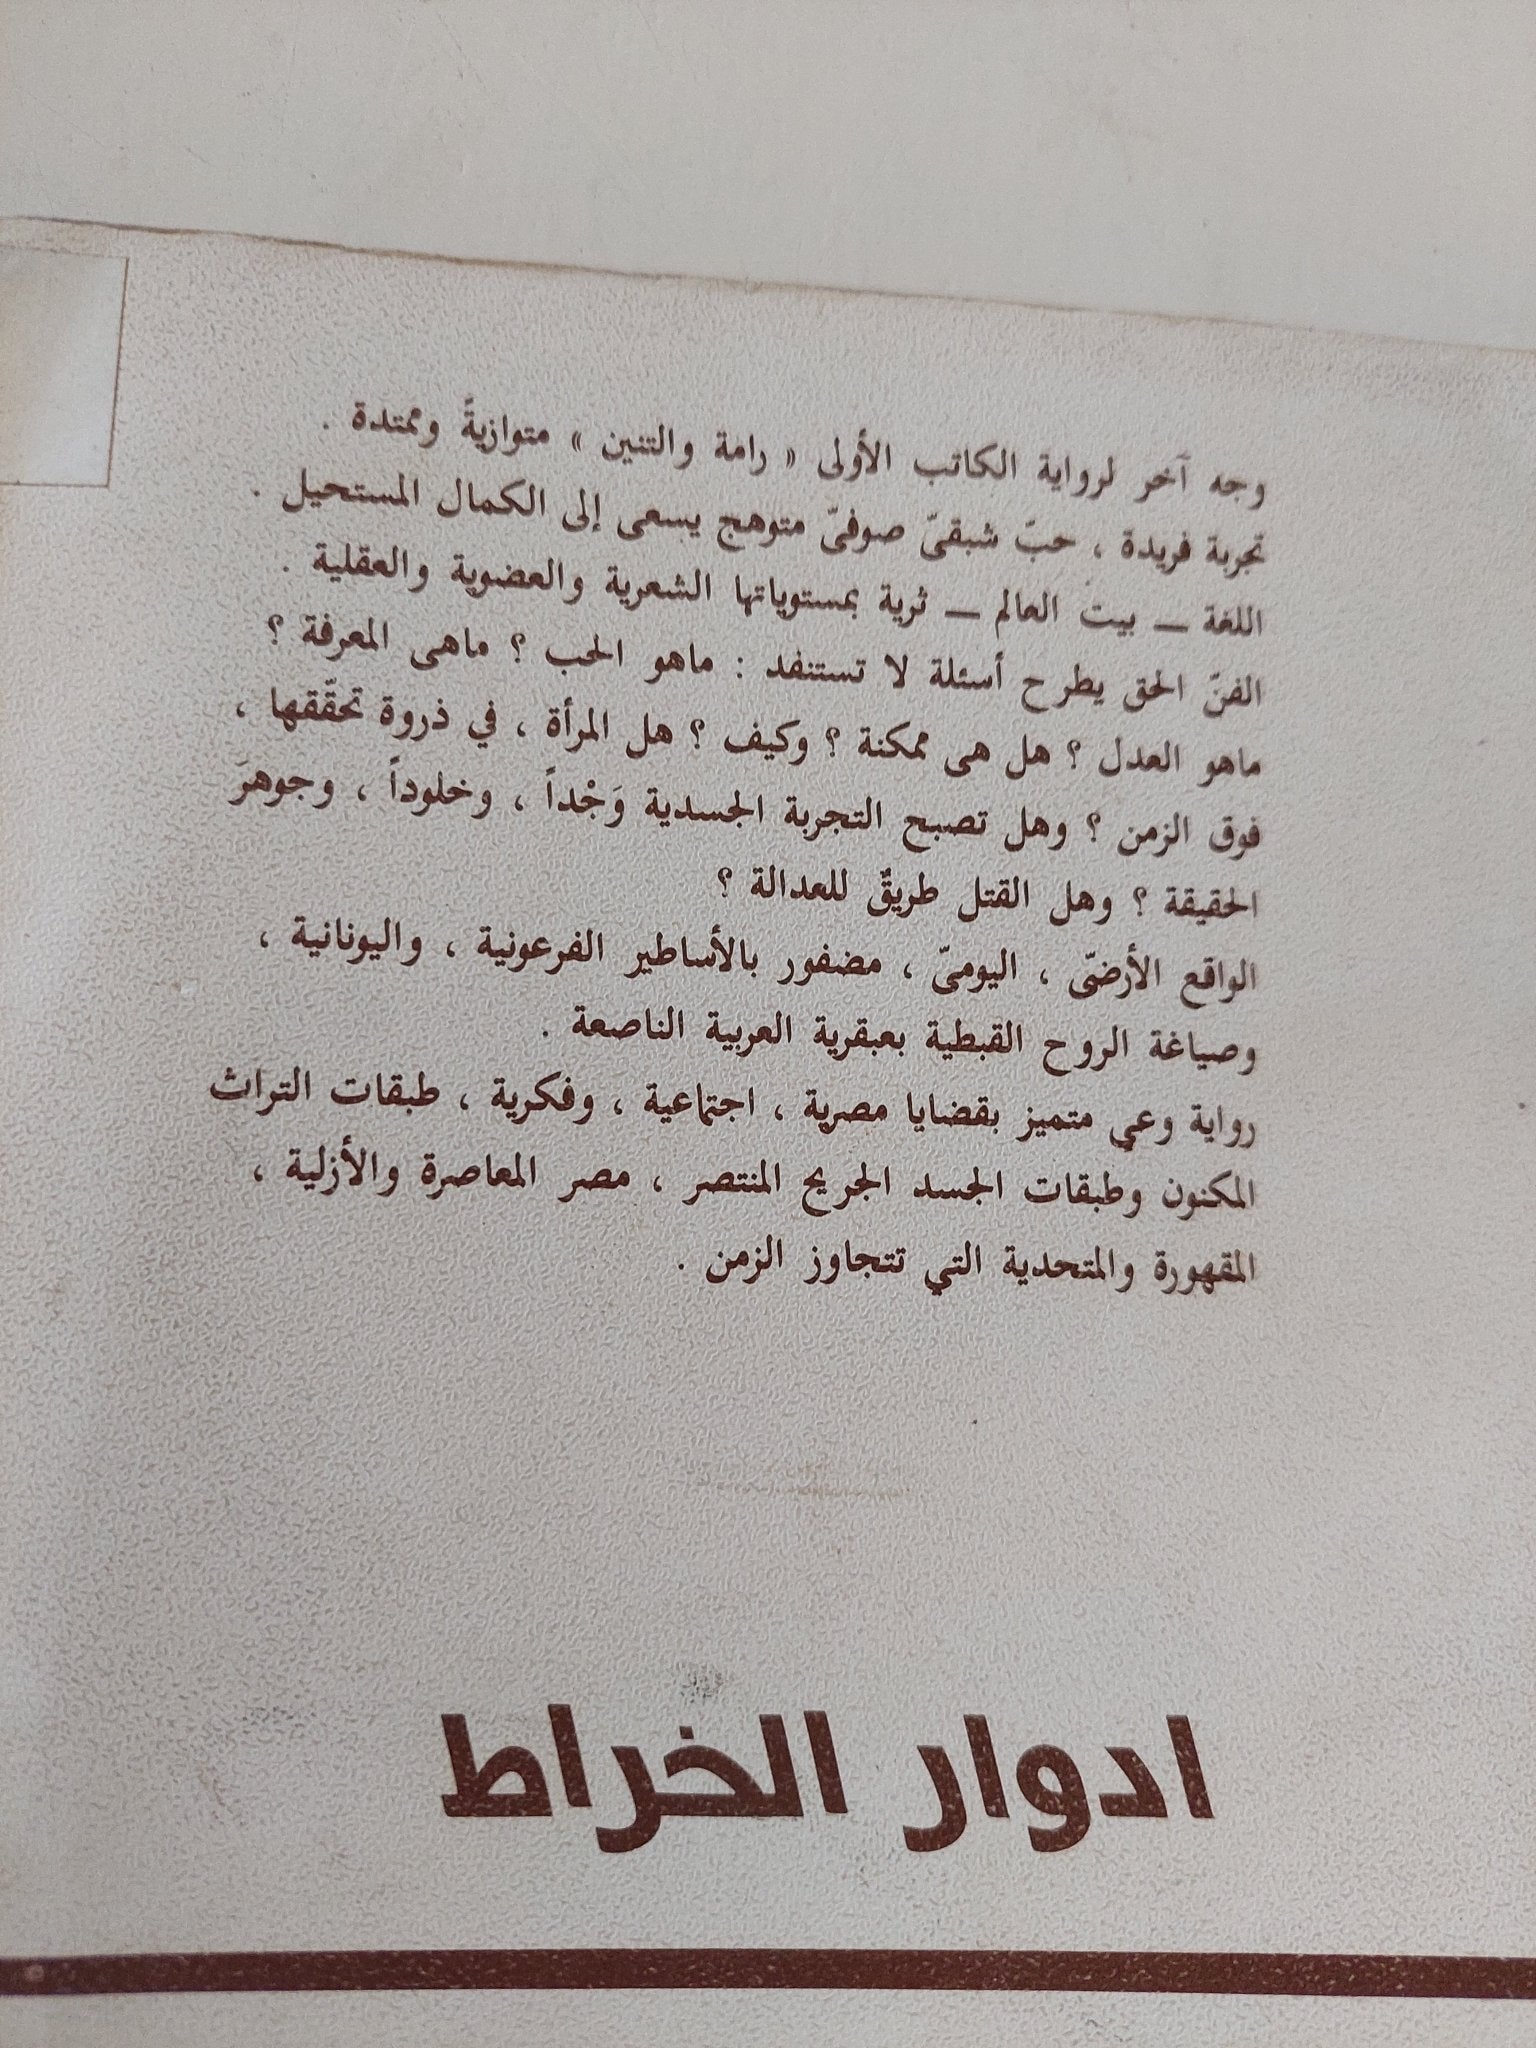 وجه آخر لرواية الكاتب الأولى « رامة والتنين » متوازيةً وممتدة .
تجربة فريدة ، حبّ شبقىّ صوفىّ متوهج يسعى إلى الكمال المستحيل .
اللغة ــ بيت العالم ــ ثرية بمستوياتها الشعرية والعضوية والعقلية .
الفنّ الحق يطرح أسئلة لا تستنفد : ماهو الحب ؟ ماهى المعرفة ؟
ماهو العدل ؟ هل هى ممكنة ؟ وكيف ؟ هل المرأة ، في ذروة تحقّقها ،
فوق الزمن ؟ وهل تصبح التجربة الجسدية وَجْداً ، وخلوداً ، وجوهرَ
الحقيقة ؟ وهل القتل طريقٌ للعدالة ؟
الواقع الأرضّى ، اليومىّ ، مضفور بالأساطير الفرعونية ، واليونانية ،
وصياغة الروح القبطية بعبقرية العربية الناصعة .
رواية وعي متميز بقضايا مصرية ، اجتماعية ، وفكرية ، طبقات التراث
المكنون وطبقات الجسد الجريح المنتصر ، مصر المعاصرة والأزلية ،
المقهورة والمتحدية التي تتجاوز الزمن .
ادوار الخراط